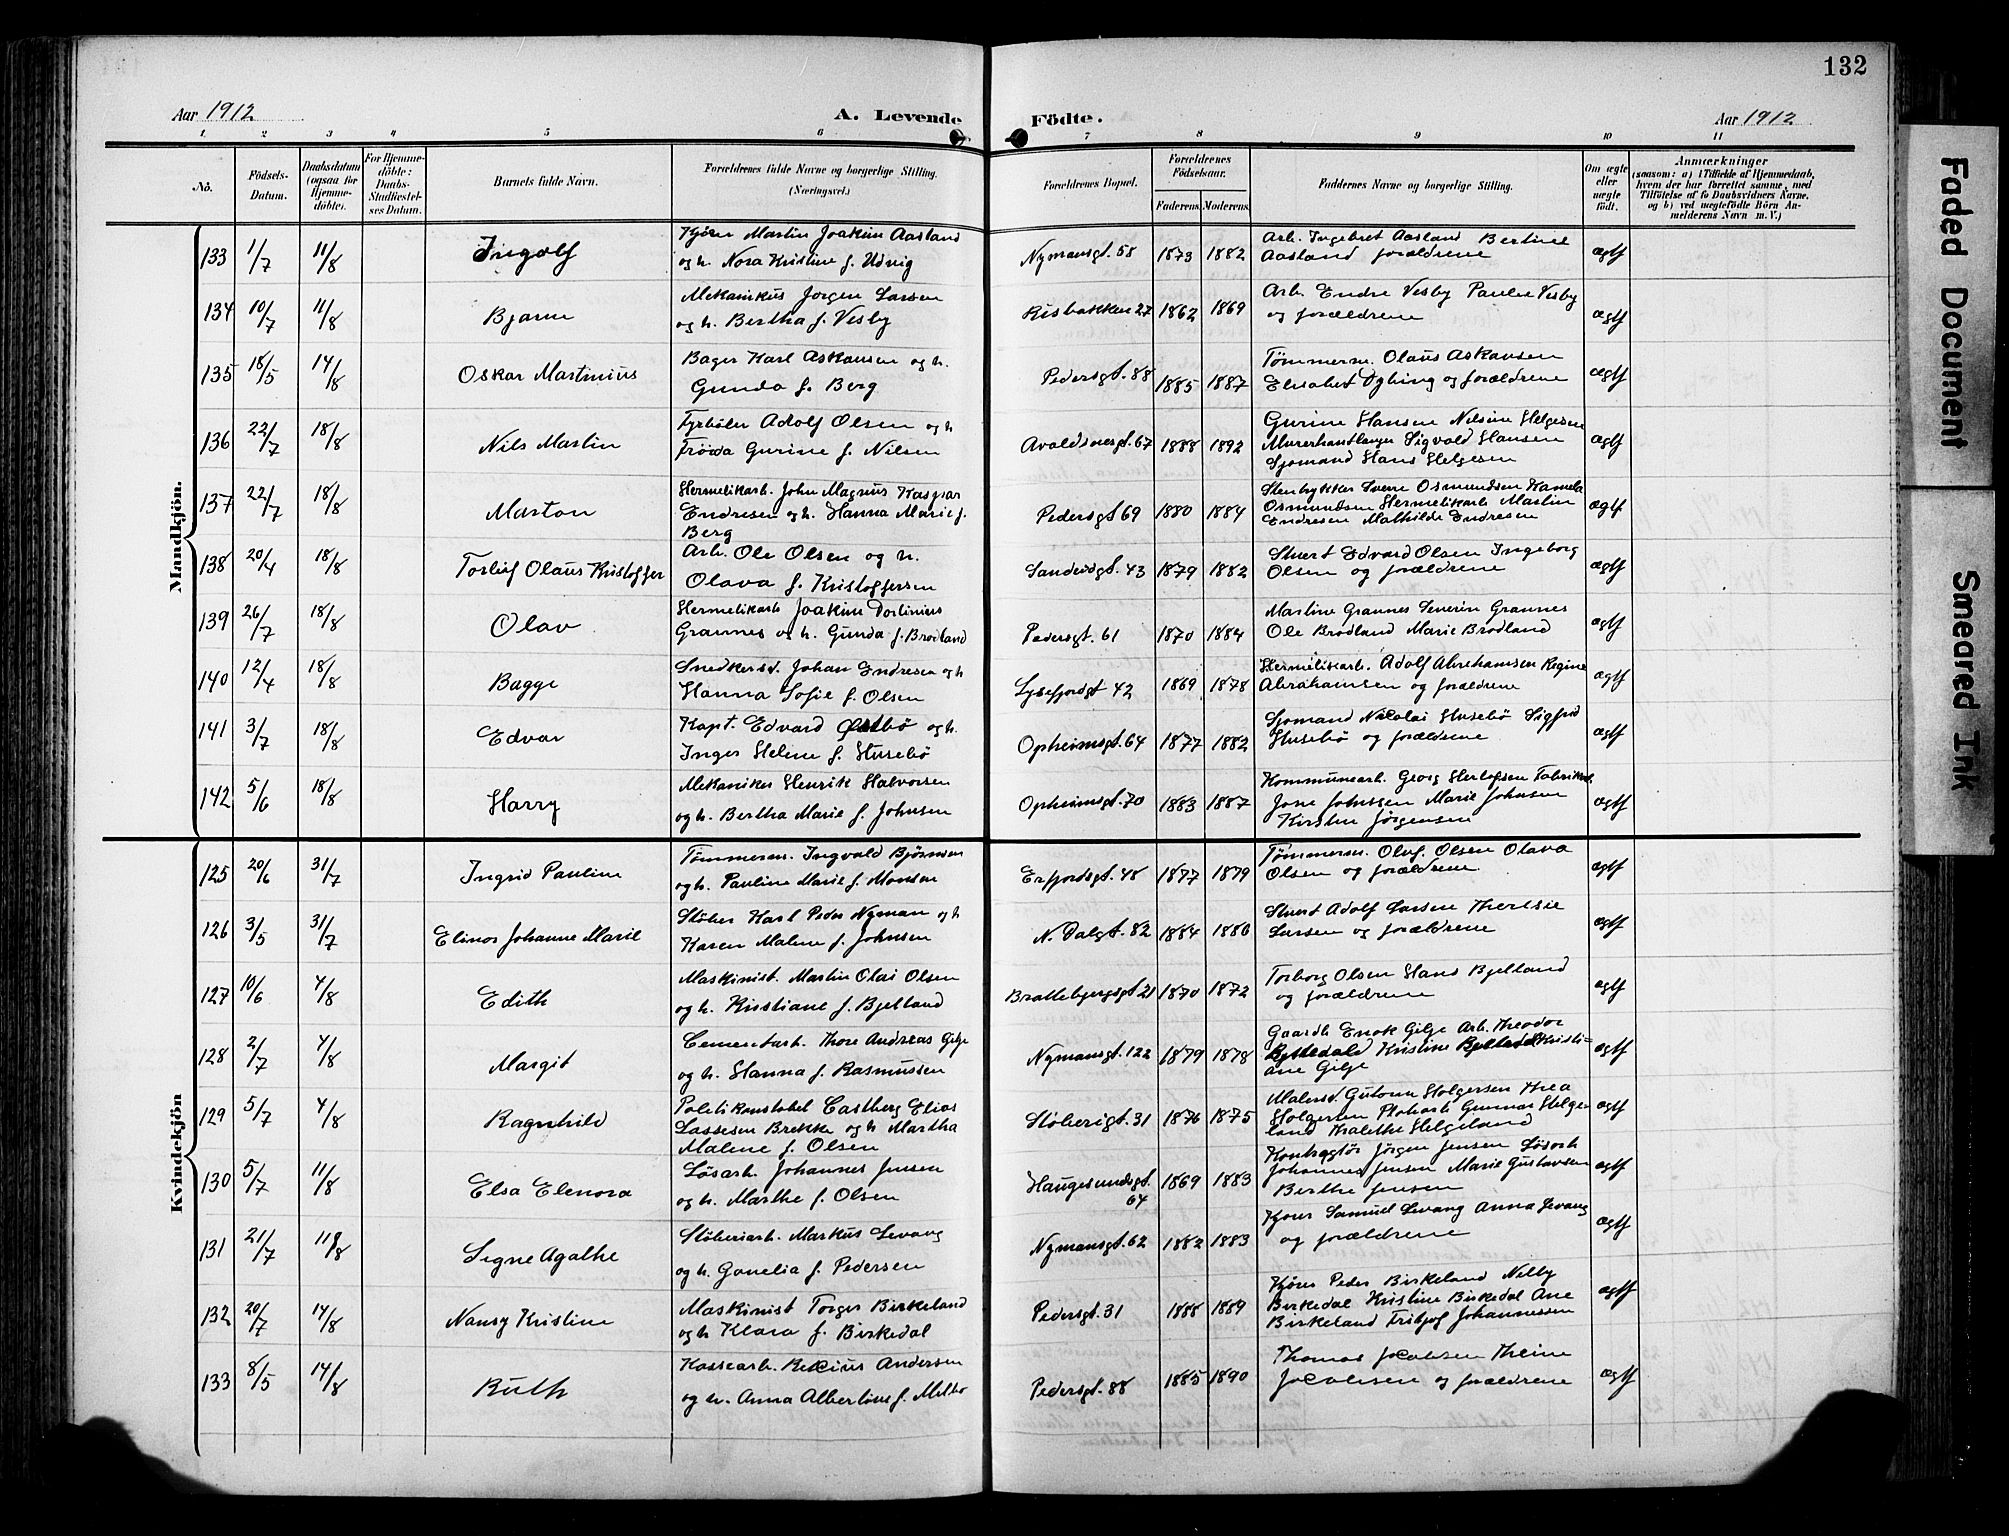 132
Aar 1912
A. Levende
Födte.
Aar 1912
1. 2 3 4 5 6 7 8 9 10 11
No.
Födsels-Datum.
Daabsdatum (ogsaa for Hjemme-döbte).
For Hjemme-döbte: Daabs-Stadfæstel-ses Datum.
Barnets fulde Navn.
Forældrenes fulde Navne og borgerlige Stilling. (Næringsvei.)
Forældrenes Bopæl.
Forældrenes Födselsaar.
Faderens. Moderens.
Faddernes Navne og borgerlige Stilling.
Om ægte eller uægte födt.
Anmærkninger
(saasom: a) i Tilfælde af Hjemmedaab, hvem der har forrettet samme, med Tilföielse af to Daabsvidners Navne, og b) ved uægtefödte Börn An-melderens Navn m. V.)
Mandkjön.
133 1/7 11/8 Ingolf Kjører Martin Joakim Aasland Nymansgt. 58 1873 1882 Arb. Ingebret Aasland Bertine ægtf
og h. Nora Kristine f. Udvig Aasland forældrene
134 10/7 11/8 Bjarne Mekanikus Jørgen Larsen Risbakken 27 1862 1869 Arb. Endre Vesby Paulee Vesby ægtf
og h. Bertha f. Vesby og forældrene
135 18/5 14/8 Oskar Martinius Bager Karl Askausen og h. Pedersgt. 88 1885 1887 Tømmerm. Olaus Askausen ægtf
Gunda f. Berg Elisabet og forældrene
136 22/7 18/8 Nils Martin Fyrbøter Adolf Olsen og h Avaldsnesgt. 67 1888 1892 Gurine Hansen Nilsine Helgesen ægtf
Gurine f. Nilsen Murerhantlanger Sigvald Hansen
Sjømand Hans Helgesen
137 22/7 18/8 Marton Hermetikarb. John Magnus Kaspar Pedersgt 69 1880 1884 Stenhykker Sverre Osmundsen Kamela ægtf
Endresen og h. Hanna Marie f. Osmundsen Hermetikarb Martin
Berg Endresen Mathilde Endresen
138 20/4 18/8 Torleif Olaus Kristoffer Arb. Ole Olsen og h. Sandeidgt. 43 1879 1882 Stuert Edvard Olsen Ingeborg ægtf
Olava f. Kristoffersen Olsen og forældrene
139 26/7 18/8 Olav Hermetikarb Joakim Dortinius Pedersgt. 61 1870 1884 Martine Grannes Severin Grannes ægtf
Grannes og h. Gunda f. Brodland Ole Brodland Marie Brodland
140 12/4 18/8 Bagge Snedkersv. Johan Endresen og h Lysefjordgt 42 1869 1878 Hermetikarb. Adolf Abrahamsen Regine ægtf
Hanna Sofie f. Olsen Abrahamsen og forældrene
141 3/7 18/8 Edvar Kapt. Edvard Østbø og h. Opheimsgt. 64 1877 1882 Sjømand Nicolai Husebø Sigfrid ægtf
Inger Helene f. Husebö Husebö og forældrene
142 5/6 18/8 Harry Mekaniker Henrik Halvorsen Opheimsgt. 70 1883 1887 Kommunearb. Georg Herlofsen Fabrikarb. ægtf
og h. Bertha Marie f. Johnsen Jone Johnssen Marie Johnsen
Kirsten Jörgensen
Kvindekjön
125 20/6 31/7 Ingrid Pauline Tømmerm. Ingvald Bjørnsen Erfjordsgt. 48 1877 1879 Tømmerm. Oluf. Olsen Olava ægtf
og h. Pauline Marie f. Monsen Olsen og forældrene
126 3/5 31/7 Elinor Johanne Marie Støber Karl Peder Nyman og h N. Dalgt. 82 1884 1880 Stuert Adolf Larsen Theresie ægtf
Karen Malene f. Johnsen Larsen og forældrene
127 10/6 4/8 Edith Maskinist. Martin Olai Olsen Brattebjergsgt 21 1870 1872 Torborg Olsen Hans Bjelland ægtf
og h. Kristiane f. Bjelland og forældrene
128 2/7 4/8 Margit Cementarb. Thore Andreas Gilje Nymansgt. 122 1879 1878 Gaardb Enok Gilje Arb. Theodor ægtf
og h. Hanna f. Rasmussen Kristine Kristi-
ane Gilje
129 5/7 4/8 Ragnhild Politikonstabel Castberg Elias Støberigt. 31 1876 1875 Malersv. Holgersen Thea ægtf
Lassesen Brekke og h Martha Holgersen Gunnar Helge-
Malene f. Olsen land Thalethe Helgeland
130 5/7 11/8 Elsa Elenora Løsarb. Johannes Jensen Haugesundsgt. 64 1869 1883 Kontrapør Jørgen Jensen Løsarb ægtf
og h. Marthe f. Olsen Johannes Jensen Marie Gustavsen
Berthe Jensen
131 21/7 11/8 Signe Agathe Støberiarb. Markus Levang Nymansgt. 62 1882 1883 Kjører Samuel Levang Anna Levang ægtf
og h. Gonelia f. Pedersen og forældrene
132 20/7 14/8 Nansy Kristine Maskinist Torger Birkeland Pedersgt. 31 1888 1889 Kjører Peder Birkeland Nelly ægtf
og h Klara f. Birkedal Birkedal Kristine Birkedal Ane
Birkeland Fritjof Johannessen
133 8/5 14/8 Ruth Kassearb. Andersen Pedersgt. 88 1885 1890 Thomas Jacobsen Theine ægtf
og h. Anna Albertine f. Melbo Jacobsen og forældrene
Faded Document
Smeared Ink